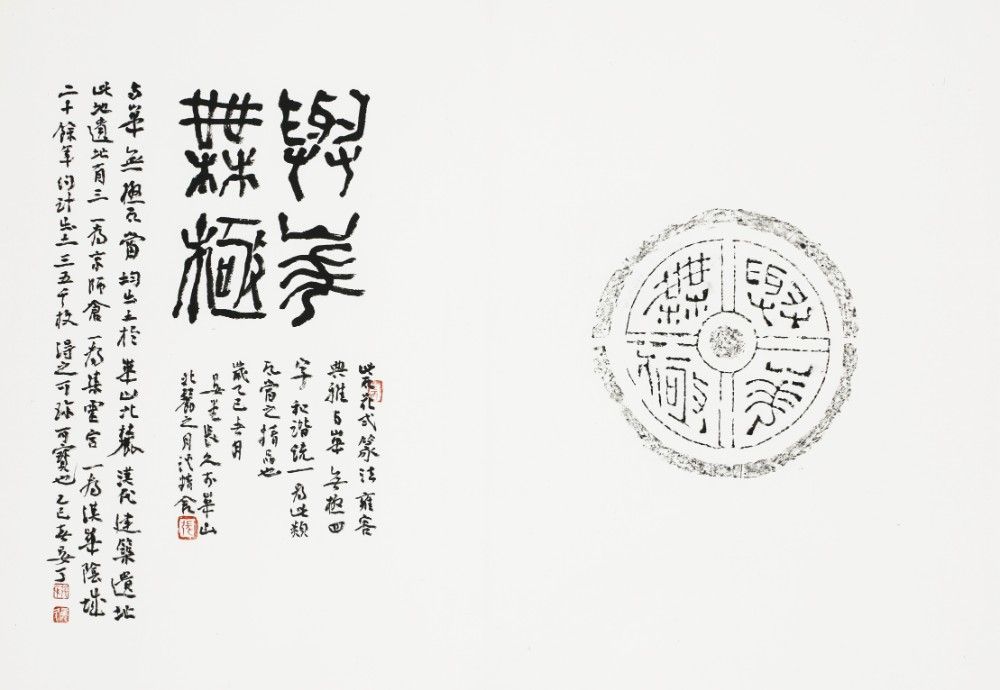 與華
無極
與華
無極
此花式篆法雍容
典雅与華無極四
字和諧統一為此類
瓦當之精品也
歲乙巳吉月
長久於華山
北麓之月精舍
与華無極瓦當均出土於華山北麓漢代建築遺址
此地遺址有三一為京師倉一為集靈宮一為漢華陰城
二十餘年約計出土三五千枚得之可珍可寶也乙巳春